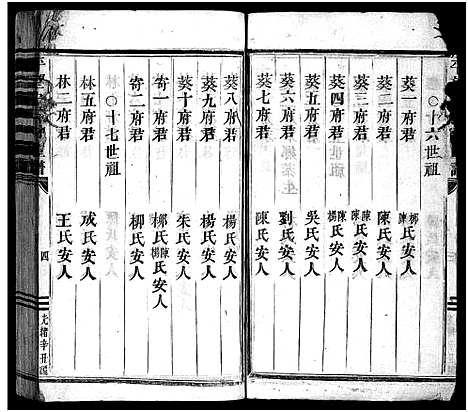 ○十六世祖
葵一府君 鄭陳氏安人
葵二府君 陳氏安人
葵三府君 陳氏安人
葵四府君 楊陳氏安人
葵五府君 吳氏安人
葵六府君 劉氏安人
葵七府君 陳氏安人
葵八府君 楊氏安人
葵九府君 楊氏安人
葵十府君 朱氏安人
竒一府君 氏安人
竒二府君 柳氏安人
○十七世祖
林五府君 成氏安人
林二府君 王氏安人
四
光緒辛丑